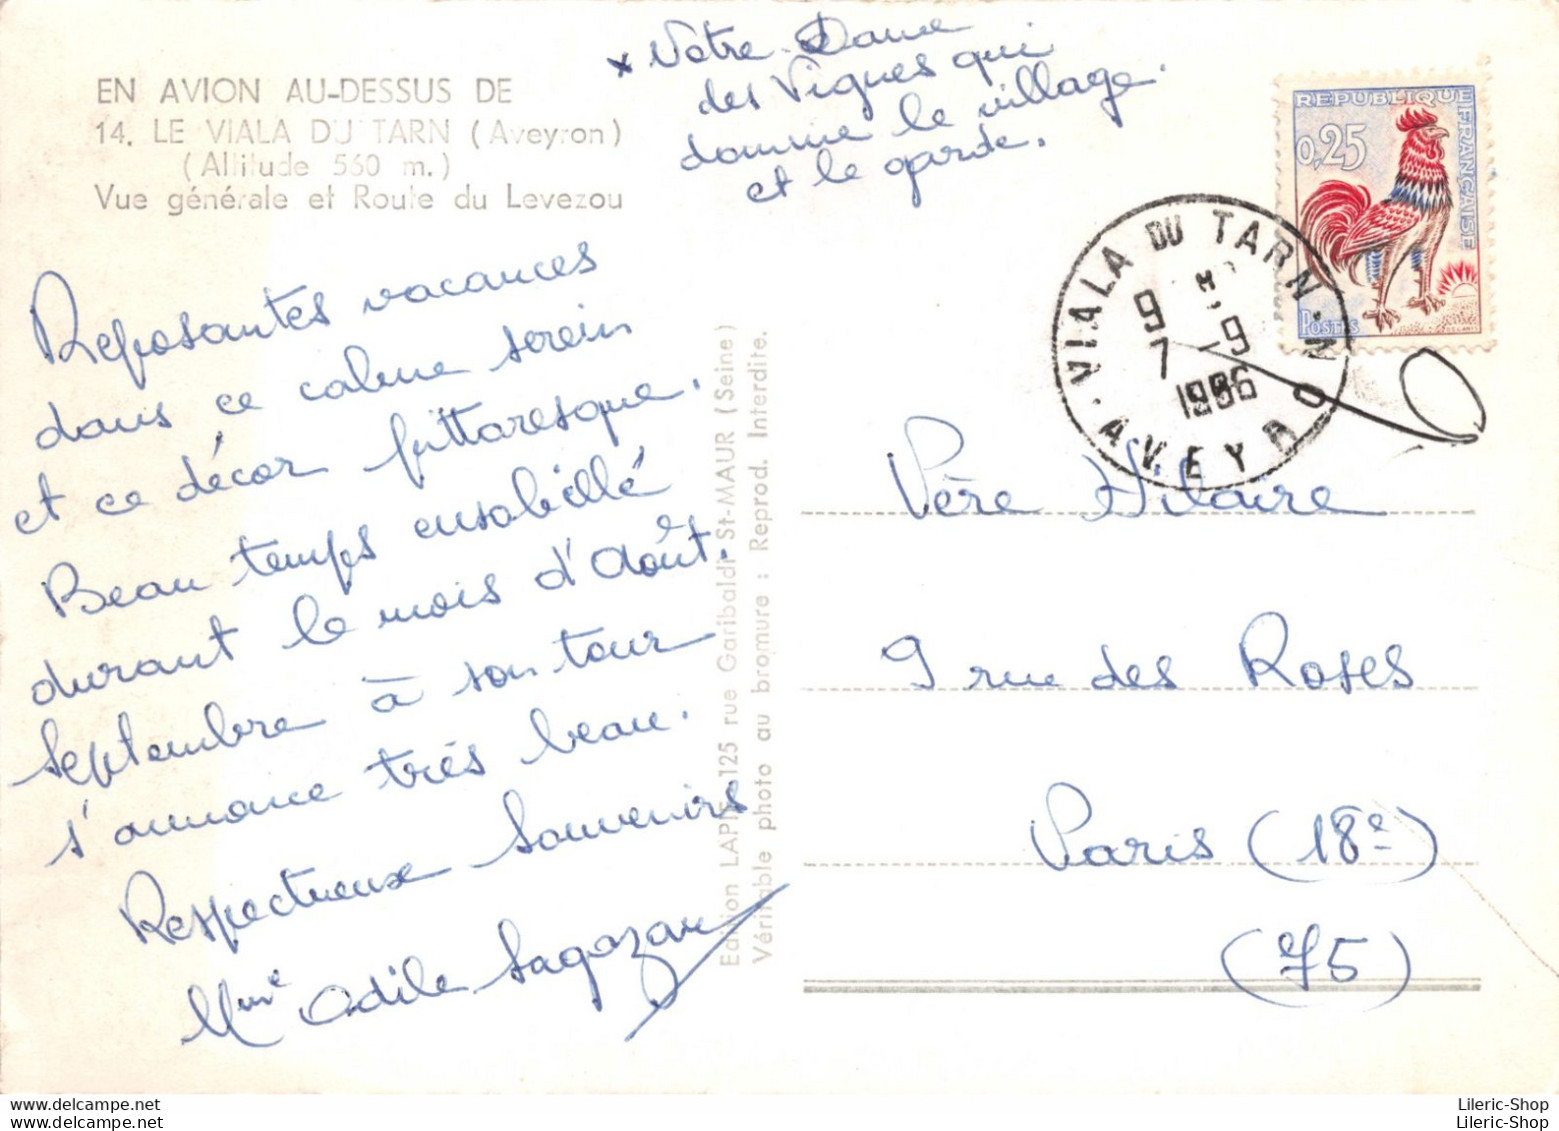 EN AVION AU-DESSUS DE
14. LE VIALA DU TARN (Aveyron)
(Altitude 560 m.)
Vue générale et Route du Levezou
* Notre-Dame
des Vignes qui
domine le village
et le garde.
Reposantes vacances
dans ce calme serein
et ce décor pittoresque.
Beau temps ensoleillé
durant le mois d'Août.
Septembre à son tour
s'annonce très beau.
Respectueux souvenirs
Mme Odile Sagazan
Edition LAPIE 125 rue Garibaldi St-MAUR (Seine)
Véritable photo au bromure : Reprod. Interdite.
REPUBLIQUE FRANÇAISE
0,25
POSTES
VIALA DU TARN
9 - 9
7 1966
AVEYRON
Père Hilaire
9 rue des Roses
Paris (18e)
(75)
Lileric-Shop
Lileric-Shop
Lileric-Shop
Lileric-Shop